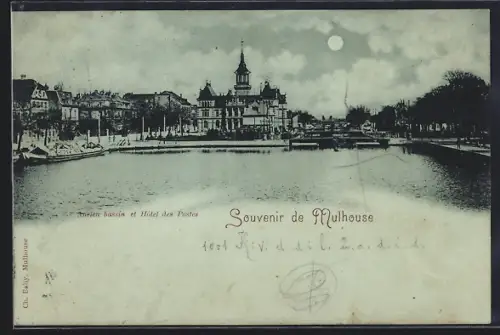 Ancien bassin et Hôtel des Postes
Souvenir de Mulhouse
Ch. Bahy, Mulhouse